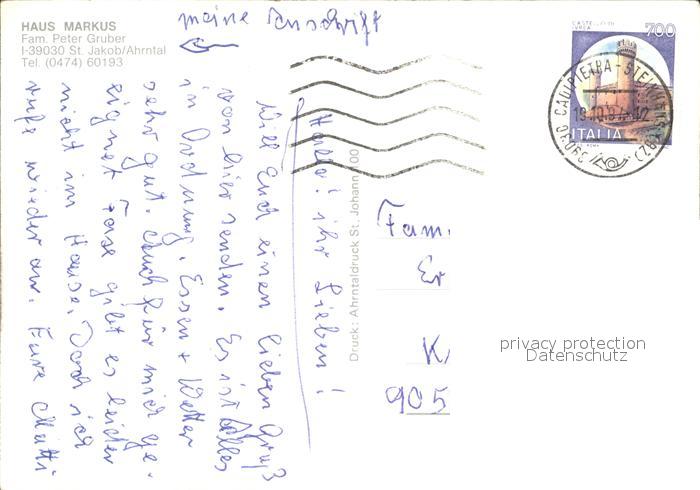 HAUS MARKUS
Fam. Peter Gruber
I-39030 St. Jakob/Ahrntal
Tel. (0474) 60193
meine Anschrift
Hallo! ihr Lieben!
Will Euch einen lieben Gruß
von hier senden. Es ist alles
in Ordnung. Essen + Wetter
sehr gut. Auch für mich ge-
eignet. Tase gibt es leider
nicht im Hause. Doch ich
rufe wieder an. Eure Mutti
Druck: Ahrntaldruck St. Johann 100
CASTELLO DI
IVREA
700
ITALIA
39030 CADIPIETRA - STEINHAUS (BZ)
Fam.
Er
K
905
privacy protection
Datenschutz